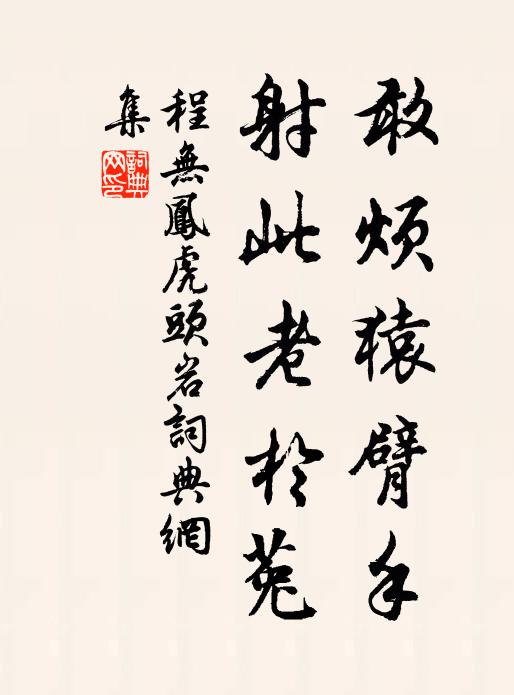 敢煩猿臂手
射此老於菟
程無鳳虎頭岩詞典網
集
詞典網印